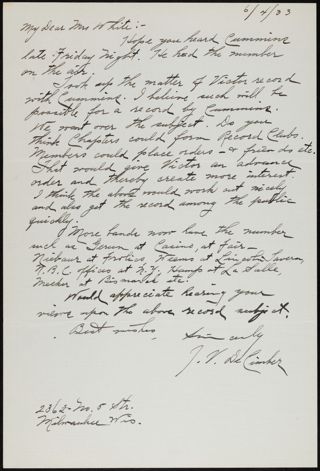 6/4/33
My Dear Mrs White:-
Hope you heard Cummins
late Friday night. He had the number
on the air.
Took up the matter of Victor record
with Cummins. I believe such will be
possible for a record by Cummins.
We went over the subject. Do you
think Chapters could form Record Clubs.
Members could place orders - & friends etc.
That would give Victor an advance
order and thereby create more interest.
I think the above would work out nicely
and also get the record among the public
quickly.
More bands now have the number
such as Gerun at Casino, at fair -
at Frolics, Weems at Lincoln Tavern,
N.B.C. offices at N.Y. Kemp at La Salle,
Meeker at Bismarck etc.
Would appreciate hearing your
views upon the above record subject.
Best wishes
Sincerely
J. V. De Cimber
2362- No. 5 Str.
Milwaukee Wis.